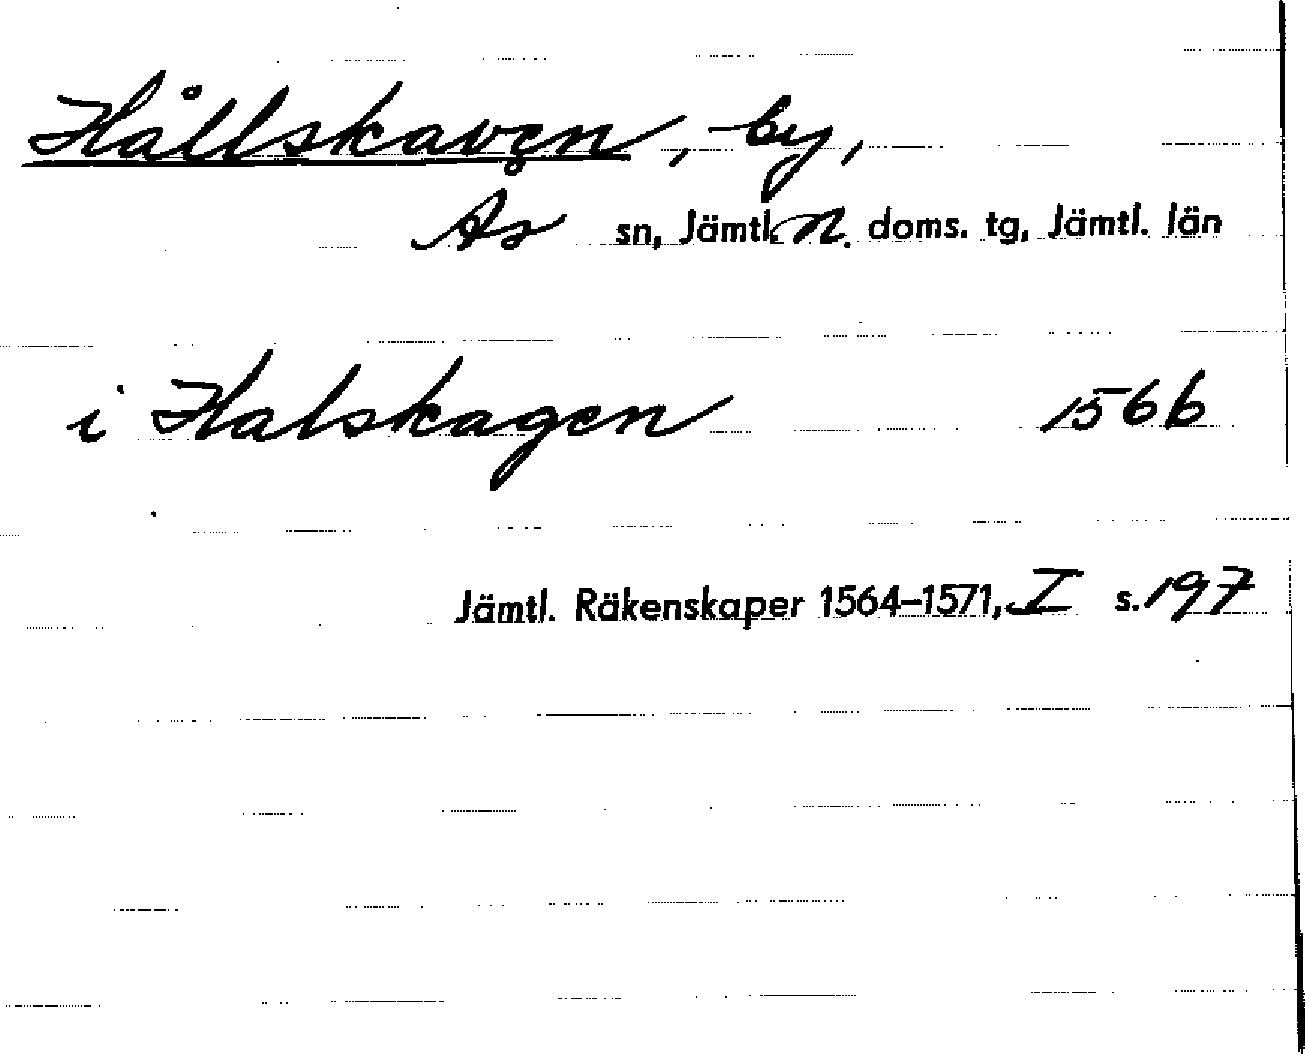 Hållskaven, by,
Ås sn, Jämtl. N. doms. tg, Jämtl. län
i Halskagen 1566
Jämtl. Räkenskaper 1564–1571, I s. 197